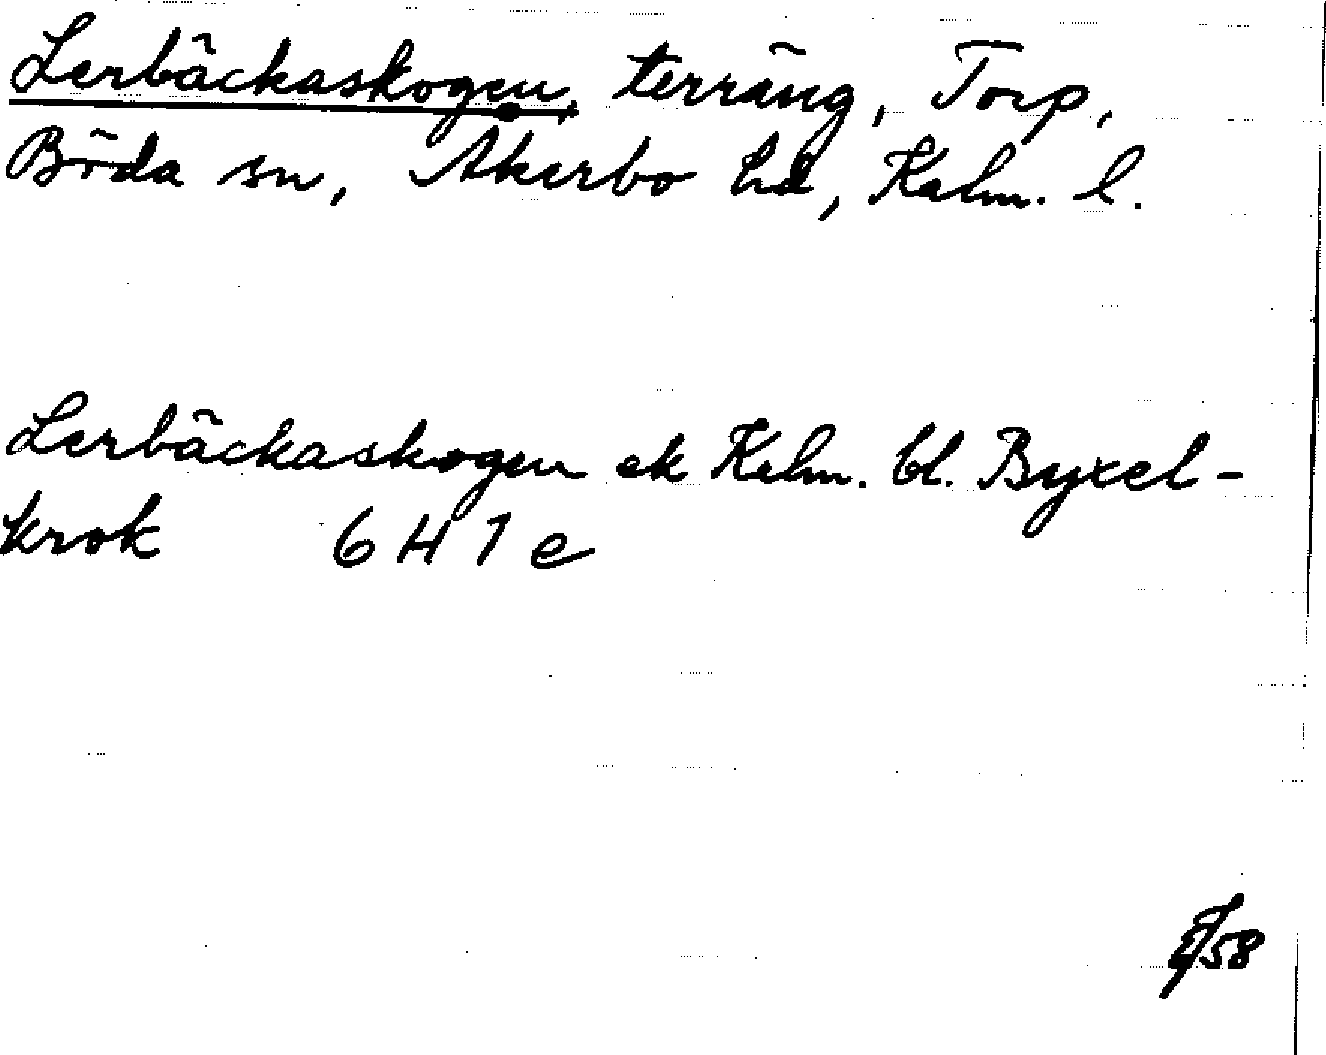 Lerbäckaskogen, terräng, Torp,
Böda sn, Åkerbo hd, Kalm. l.
Lerbäckaskogen ek Kalm. bl. Byxel-
krok 6 H 1 e
/58